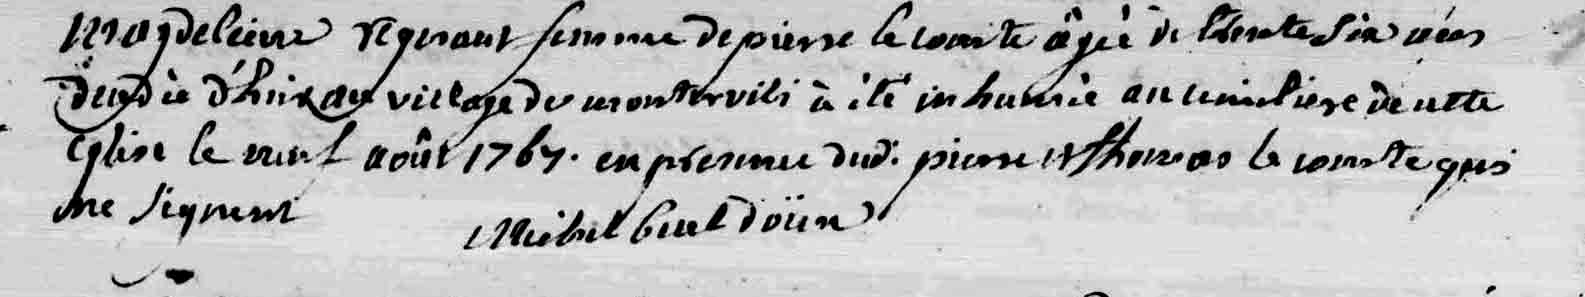 Magdeleine regnaut femme de pierre le comte âgée de trente six
d'hier au village de montervili à été inhumée au cimetiere de cette
Eglise le neuf août 1767. en présence dud. pierre et thomas le comte qui
ne signent
Michel bueldoüin